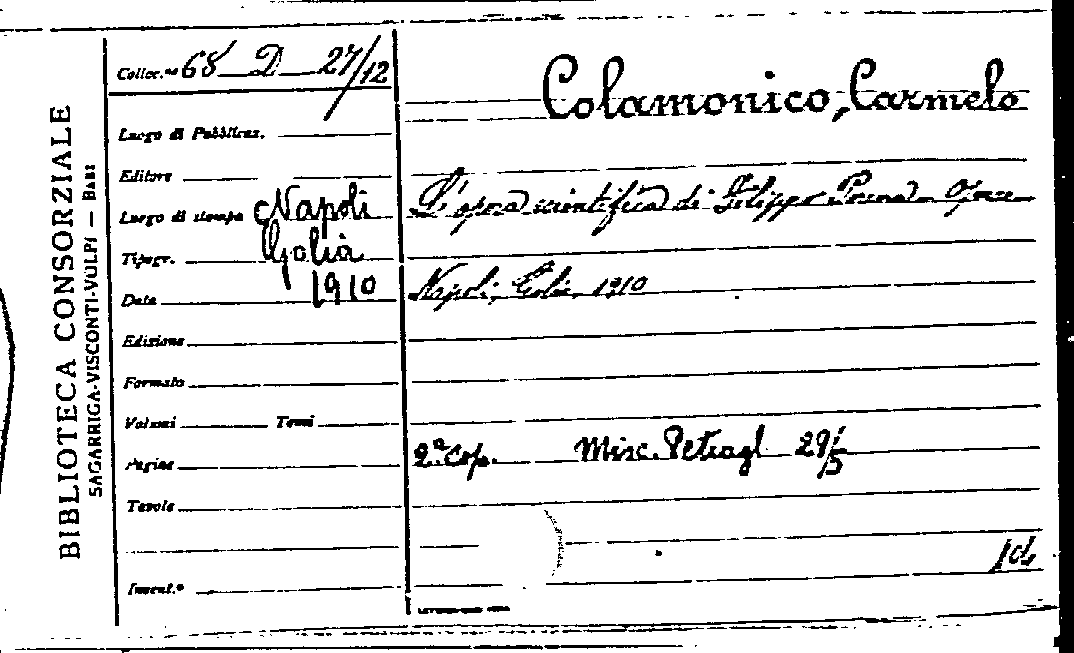 BIBLIOTECA CONSORZIALE
SAGARRIGA-VISCONTI-VOLPI — BARI
Colloc.ne 68 D 27/12
Luogo di Pubblicaz.
Editore
Luogo di stampa Napoli
Tipogr. Golia
Data 1910
Edizione
Formato
Volumi Tomi
Pagine
Tavole
Invent.º
Colamonico, Carmelo
L'opera scientifica di Filippo Porena
Napoli, Golia, 1910
2ª Cop. Misc. Petragl 29/5